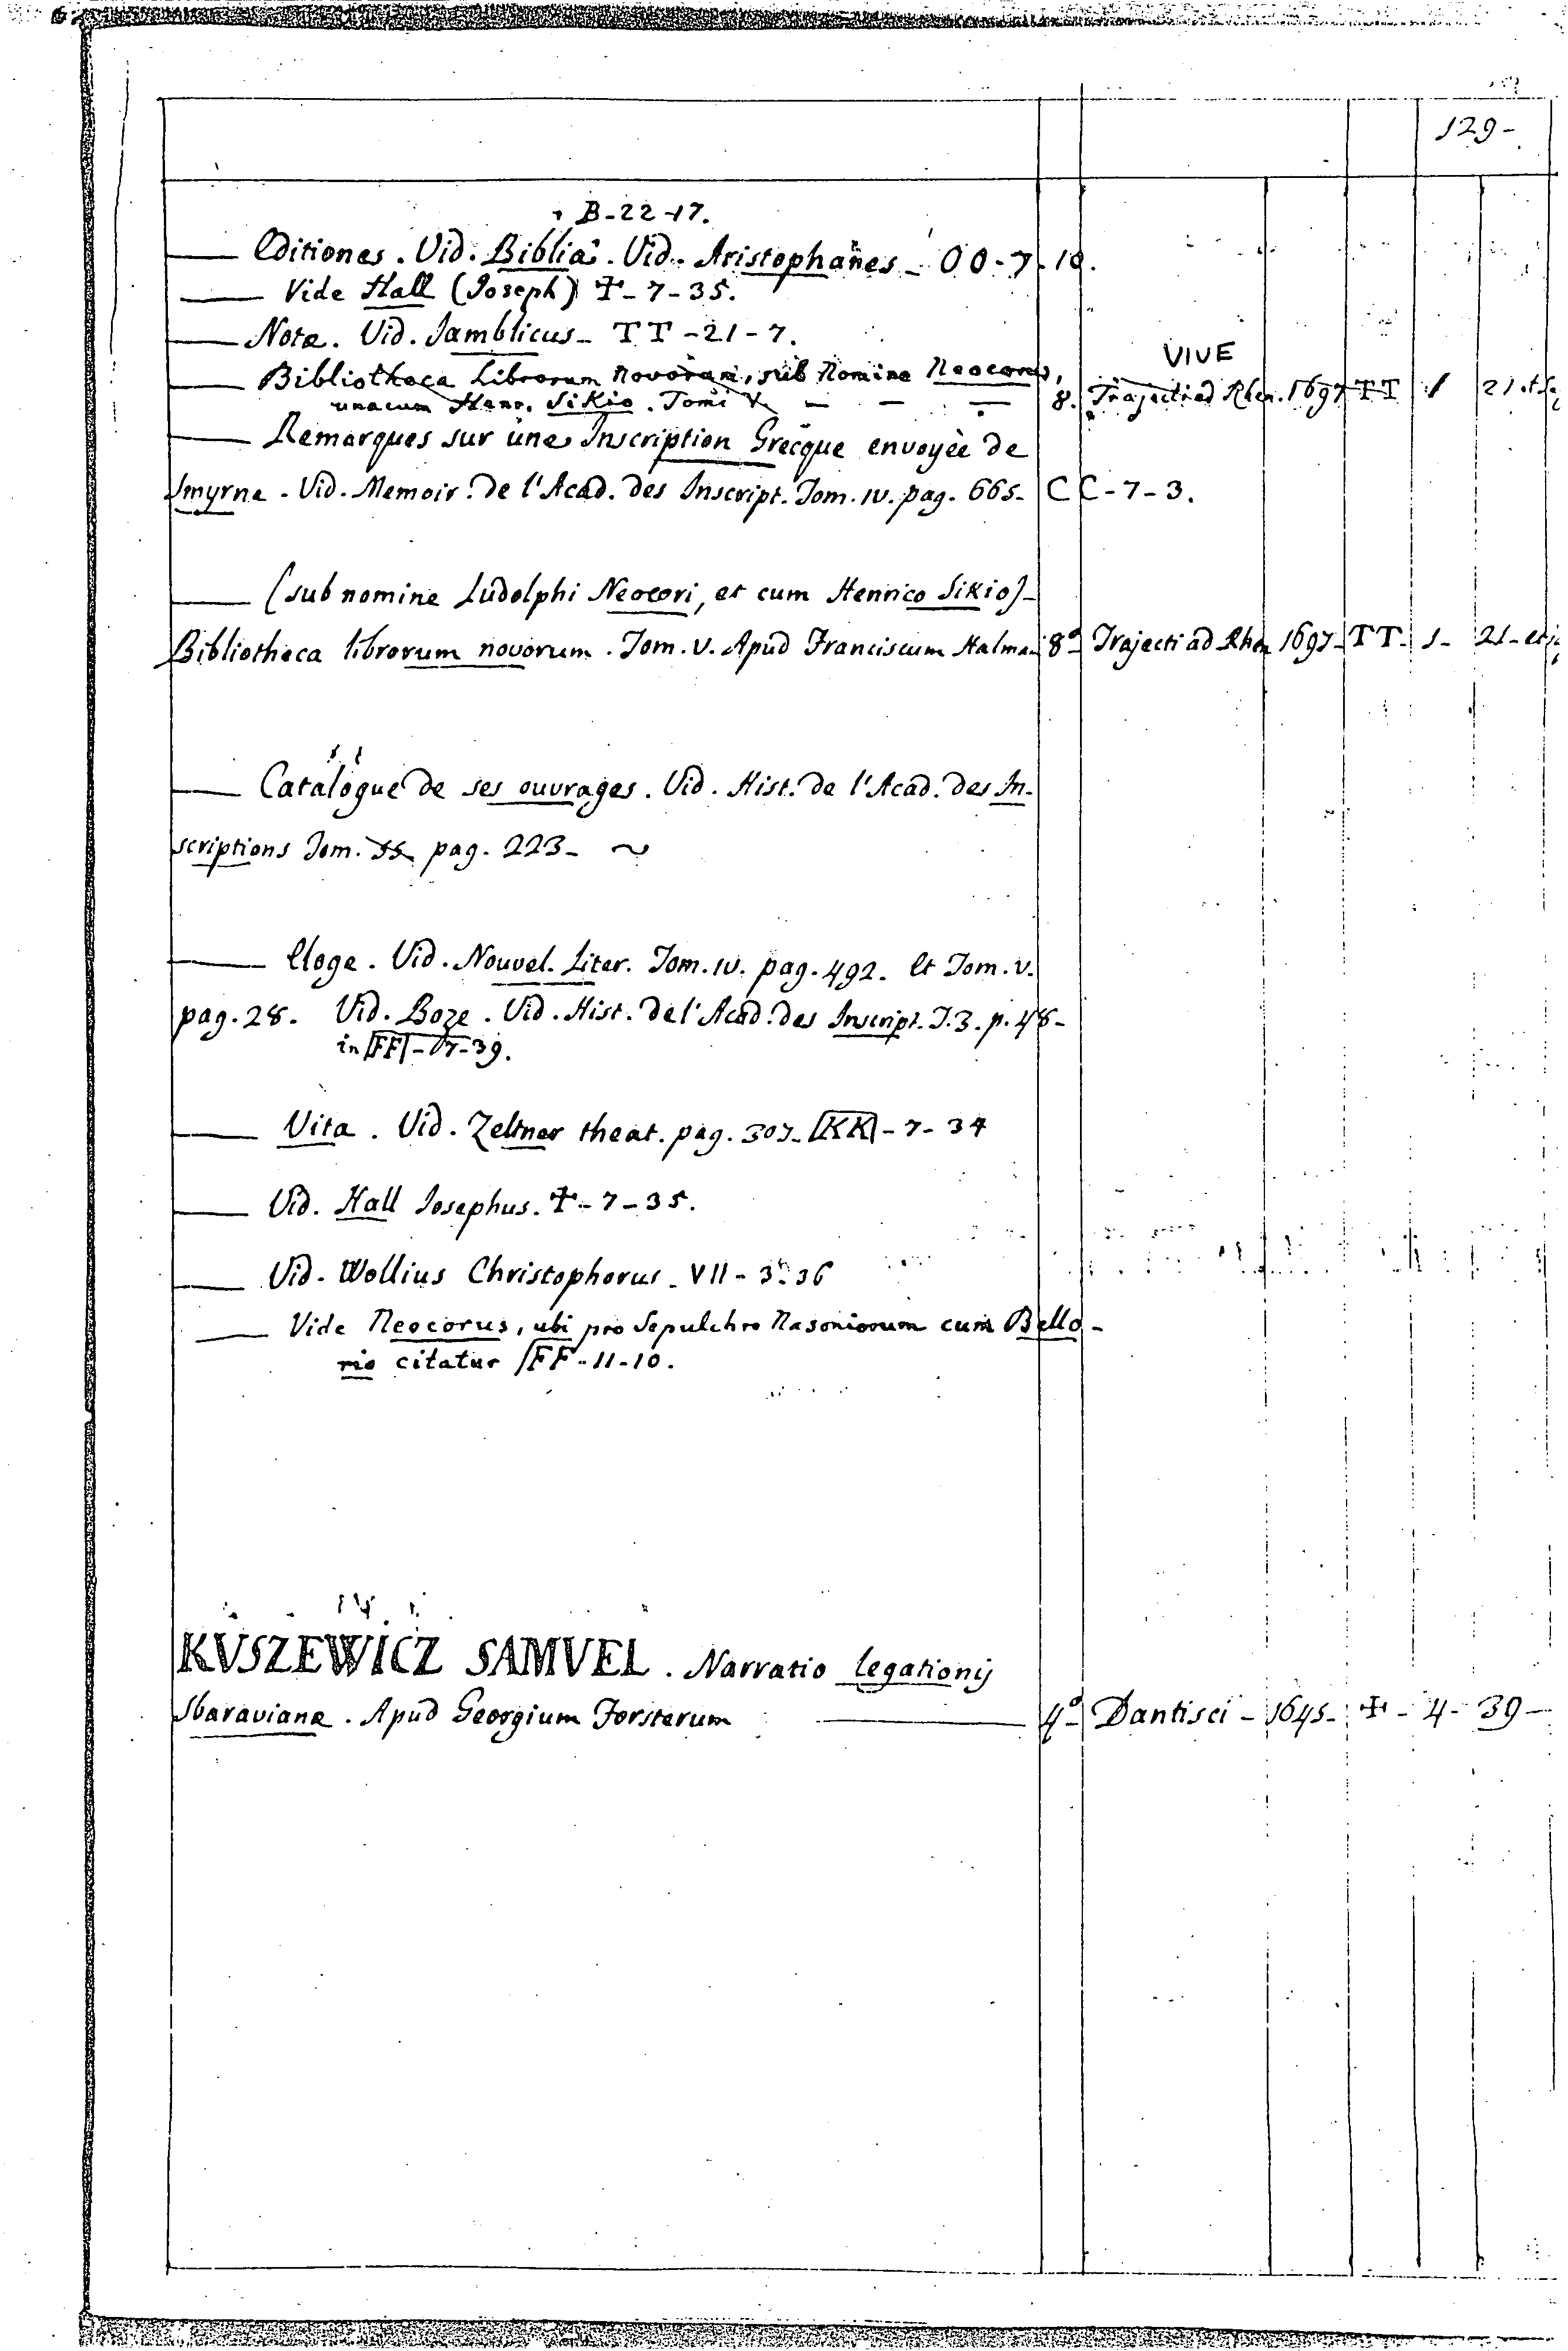 129-
B-22-17.
—— Editiones. Vid. Biblia. Vid. Aristophanes - OO-7-10.
—— Vide Hall (Joseph) ☩-7-35.
—— Notæ. Vid. Jamblicus - TT-21-7.
—— Bibliotheca Librorum Novorum, sub Nomine Neocorus, VIVE
unacum Henr. Sikio. Tomi V. — — — 8. Trajecti ad Rhen. 1697 TT 1 21. et
—— Remarques sur une Inscription Grecque envoyèe de
Smyrne. Vid. Memoir. de l'Acad. des Inscript. Tom. IV. pag. 665- CC-7-3.
—— (sub nomine Ludolphi Neocori, et cum Henrico Sikio)-
Bibliotheca librorum novorum. Tom. V. Apud Franciscum Halma- 8º- Trajecti ad Rhen 1697- TT- 1- 21- et
—— Catalogue de ses ouvrages. Vid. Hist. de l'Acad. des In-
scriptions Tom. pag. 223- ~
—— Eloge. Vid. Nouvel. Liter. Tom. IV. pag. 492. Et Tom. V.
pag. 28. Vid. Boze. Vid. Hist. de l'Acad. des Inscript. T. 3. p. 48-
in FF-7-39.
—— Vita. Vid. Zeltner theat. pag. 307- KK-7-34
—— Vid. Hall Josephus. ☩-7-35.
—— Vid. Wollius Christophorus - VII-3-36
—— Vide Neocorus, ubi pro Sepulchro Nasoniorum cum Bello-
rio citatur FF-11-10.
KVSZEWICZ SAMVEL. Narratio legationis
Sbaravianæ. Apud Georgium Forsterum —— 4º- Dantisci - 1645- ☩- 4- 39-